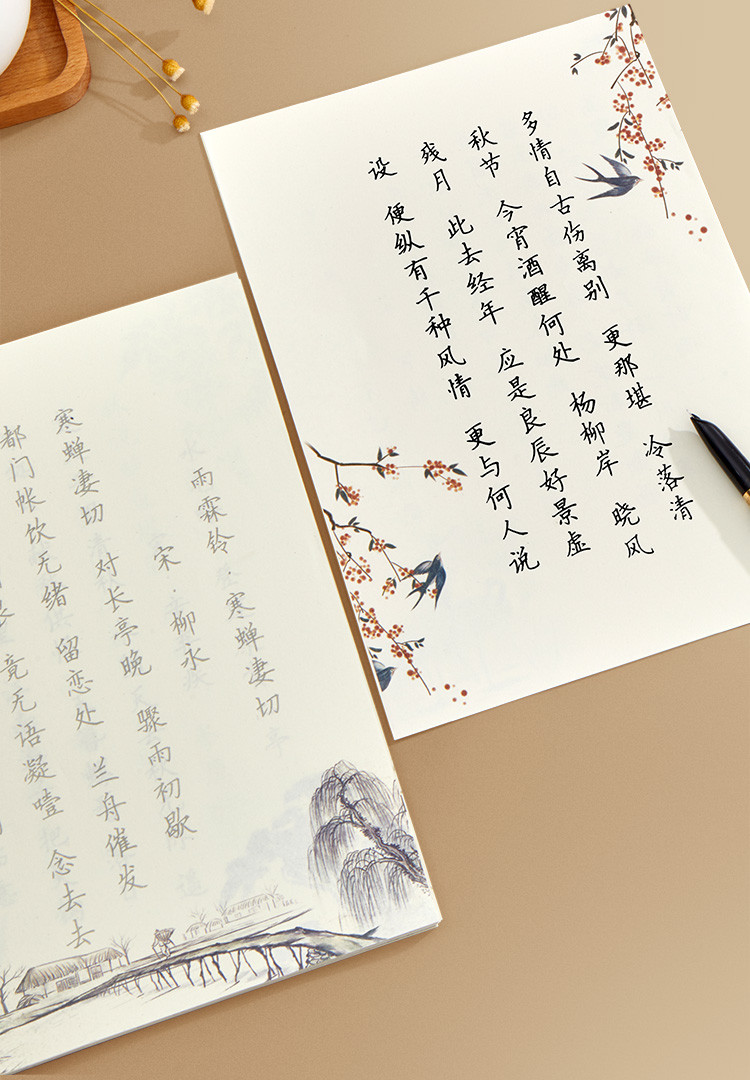 多情自古伤离别 更那堪 冷落清
秋节 今宵酒醒何处 杨柳岸 晓风
残月 此去经年 应是良辰好景虚
设 便纵有千种风情 更与何人说
雨霖铃·寒蝉凄切
宋·柳永
寒蝉凄切 对长亭晚 骤雨初歇
都门帐饮无绪 留恋处 兰舟催发
竟无语凝噎 念去去